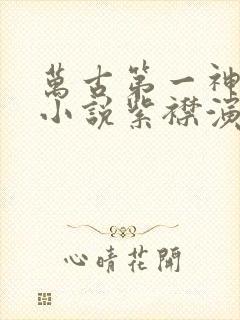 萬古第一神
小說紫襟演
心晴花開